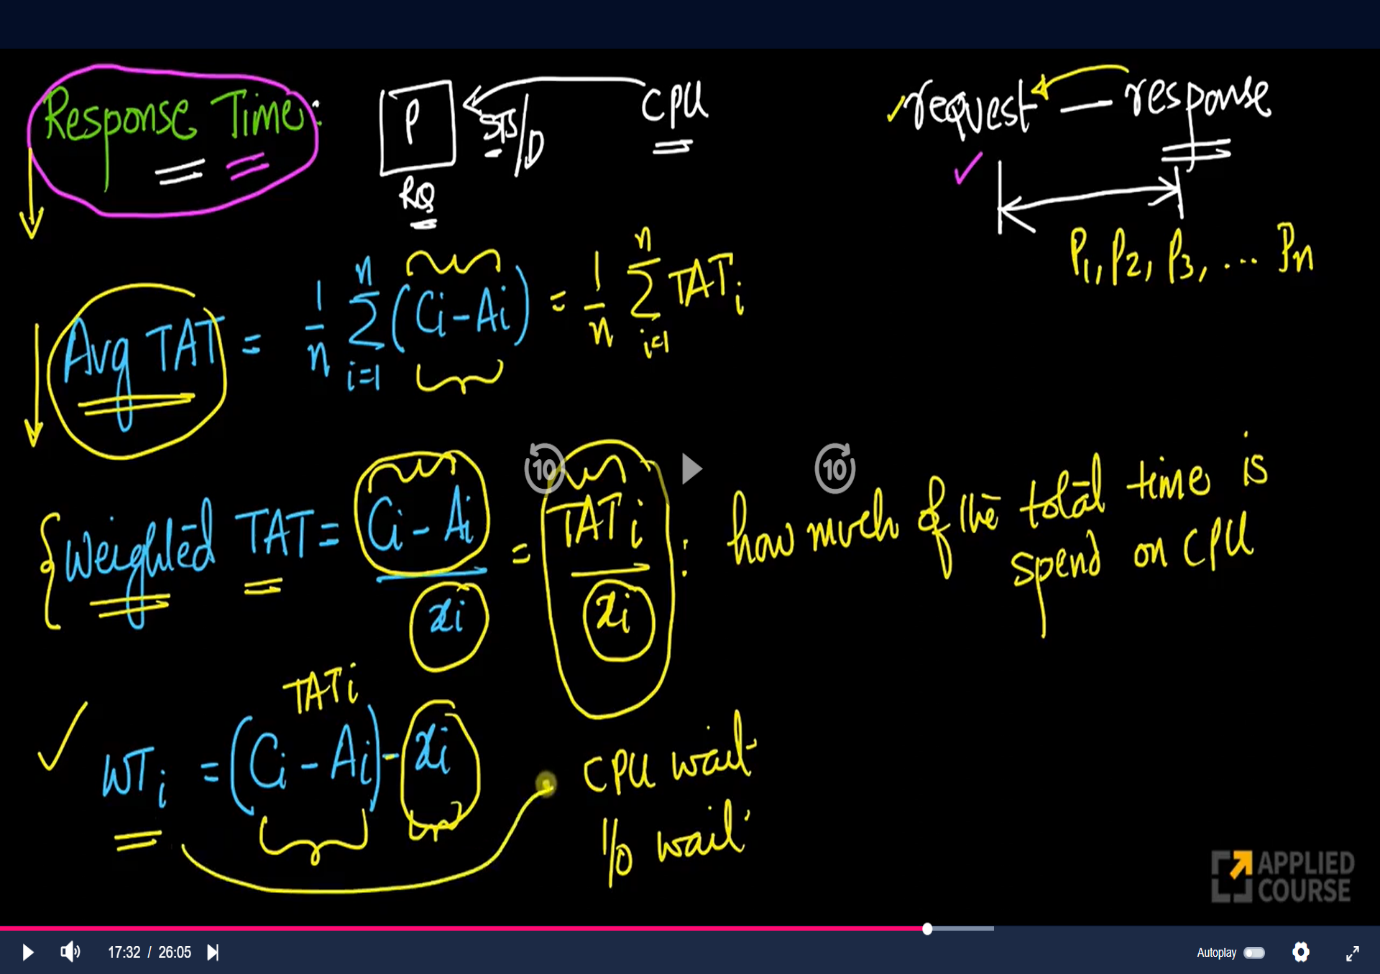 Response Time:
P
RQ
STS/D
CPU
request — response
P1, P2, P3, ... Pn
Avg TAT = 1/n n∑i=1 (Ci - Ai) = 1/n n∑i=1 TATi
10
10
{Weighted TAT = Ci - Ai / xi = TATi / xi : how much of the total time is
spend on CPU
TATi
WTi = (Ci - Ai) - xi
CPU wait
I/O wait
APPLIED
COURSE
17:32 / 26:05
Autoplay